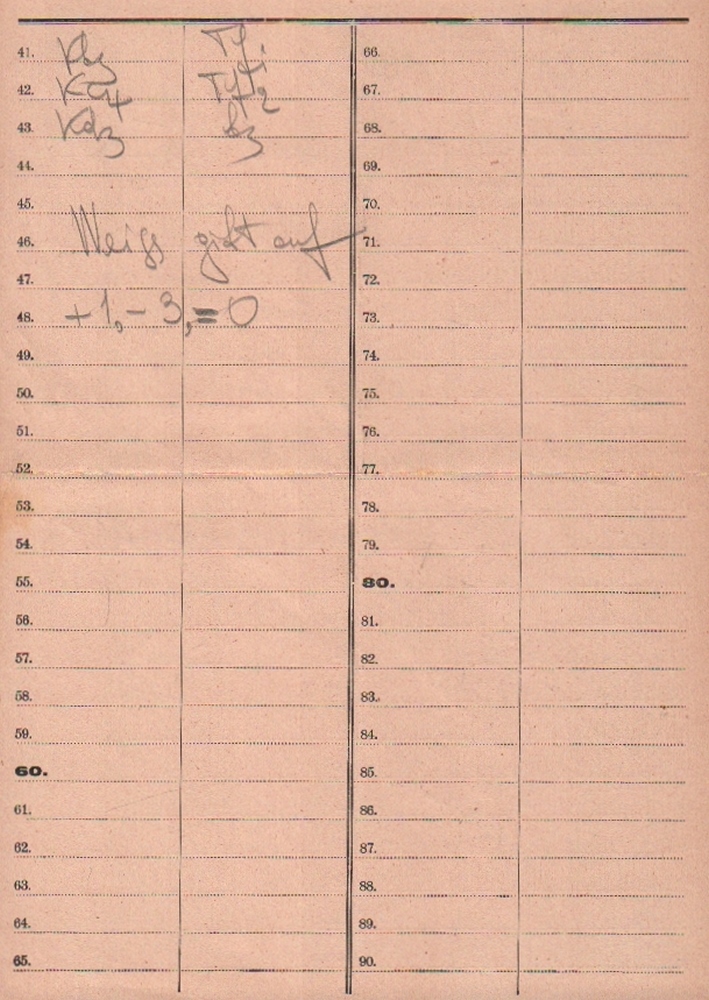 41. Kb3 Tf1
42. Ka4 Tf2
43. Kb3 b3
44.
45.
Weiss gibt auf
46.
47.
48. +1, -3, =0
49.
50.
51.
52.
53.
54.
55.
56.
57.
58.
59.
60.
61.
62.
63.
64.
65.
66.
67.
68.
69.
70.
71.
72.
73.
74.
75.
76.
77.
78.
79.
80.
81.
82.
83.
84.
85.
86.
87.
88.
89.
90.